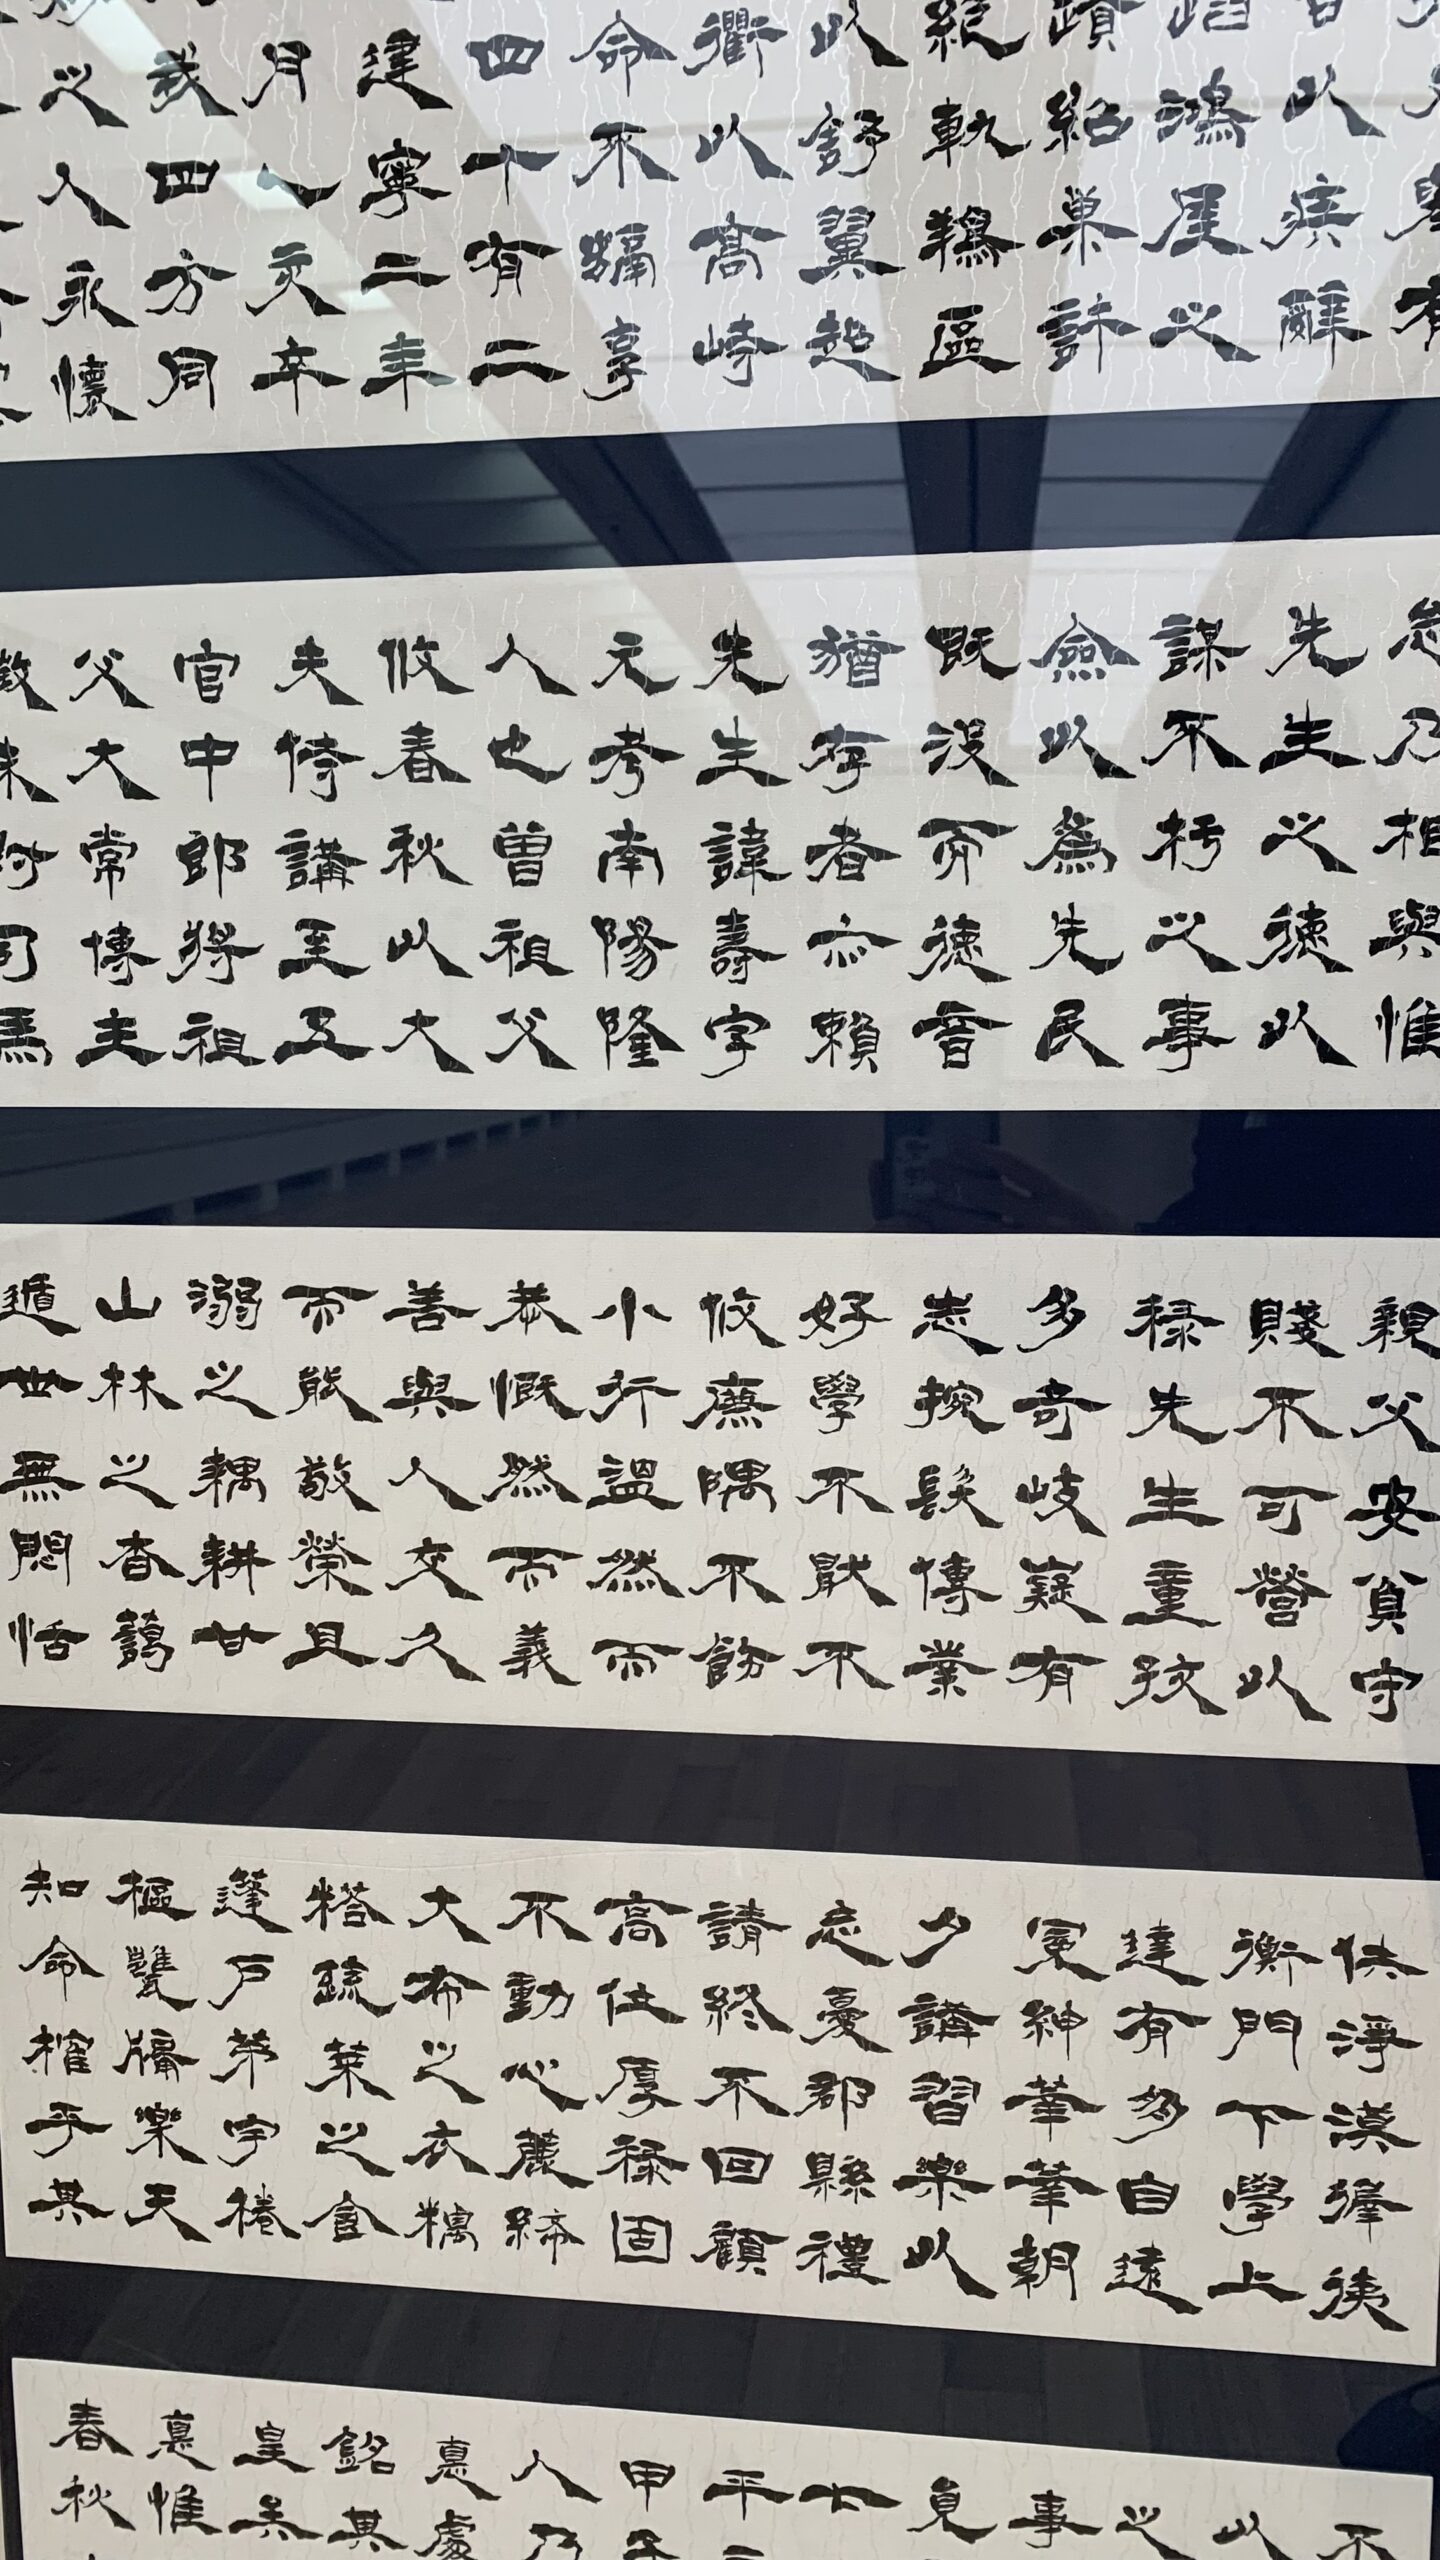 有
以疾辭
蹈鴻崖之
蹟紹巢許
絕軌鶴區
以舒翼超
衢以高峙
命不融享
四十有二
建寧二年
月乙亥卒
我四方同
之人永懷
念乃相與惟
先生之德以
謀不朽之事
僉以爲先民
既没而德音
猶存者亦賴
先生諱壽字
元考南陽隆
人也曾祖父
攸春秋以大
夫侍講至五
官中郎將祖
父大常博士
徵朱爵司馬
親父安貧守
賤不可營以
祿先生童孩
多奇岐嶷有
志捥髮傳業
好學不厭不
攸廉隅不飭
小行溫然而
恭慨然而義
善與人交久
而能敬榮且
溺之耦耕甘
山林之杳藹
遁世無悶恬
佚淨漠徲徥
衡門下學上
達有朋自遠
冕紳莘莘朝
夕講習樂以
忘憂郡縣禮
請終不回顧
高位厚祿固
不動心麤絺
大布之衣糲
糂蔬菜之食
蓬戶茅宇棬
樞甕牖樂天
知命榷乎其
不
以
之
事
見
士
平
甲子
人乃
悳處
銘其
皇矣
悳惟
春秋